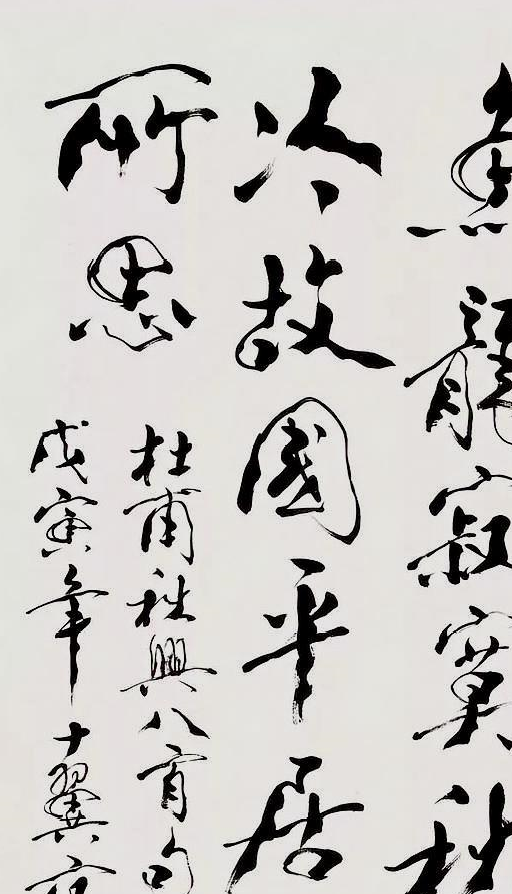 魚龍寂寞秋
冷故國平居
所思
杜甫秋興八首句
戊寅年十翼